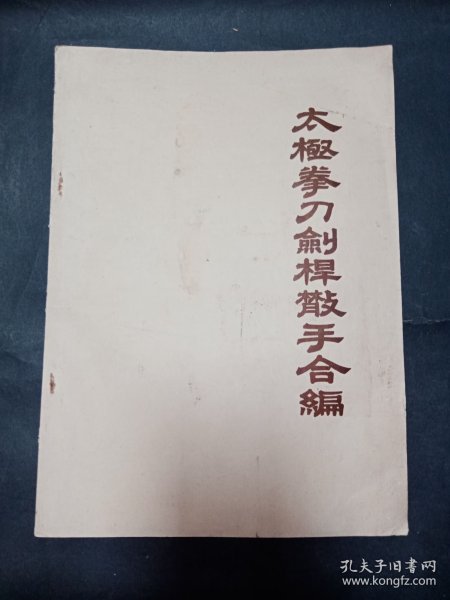 太極拳刀劍桿散手合編
孔夫子旧书网
www.kongfz.com